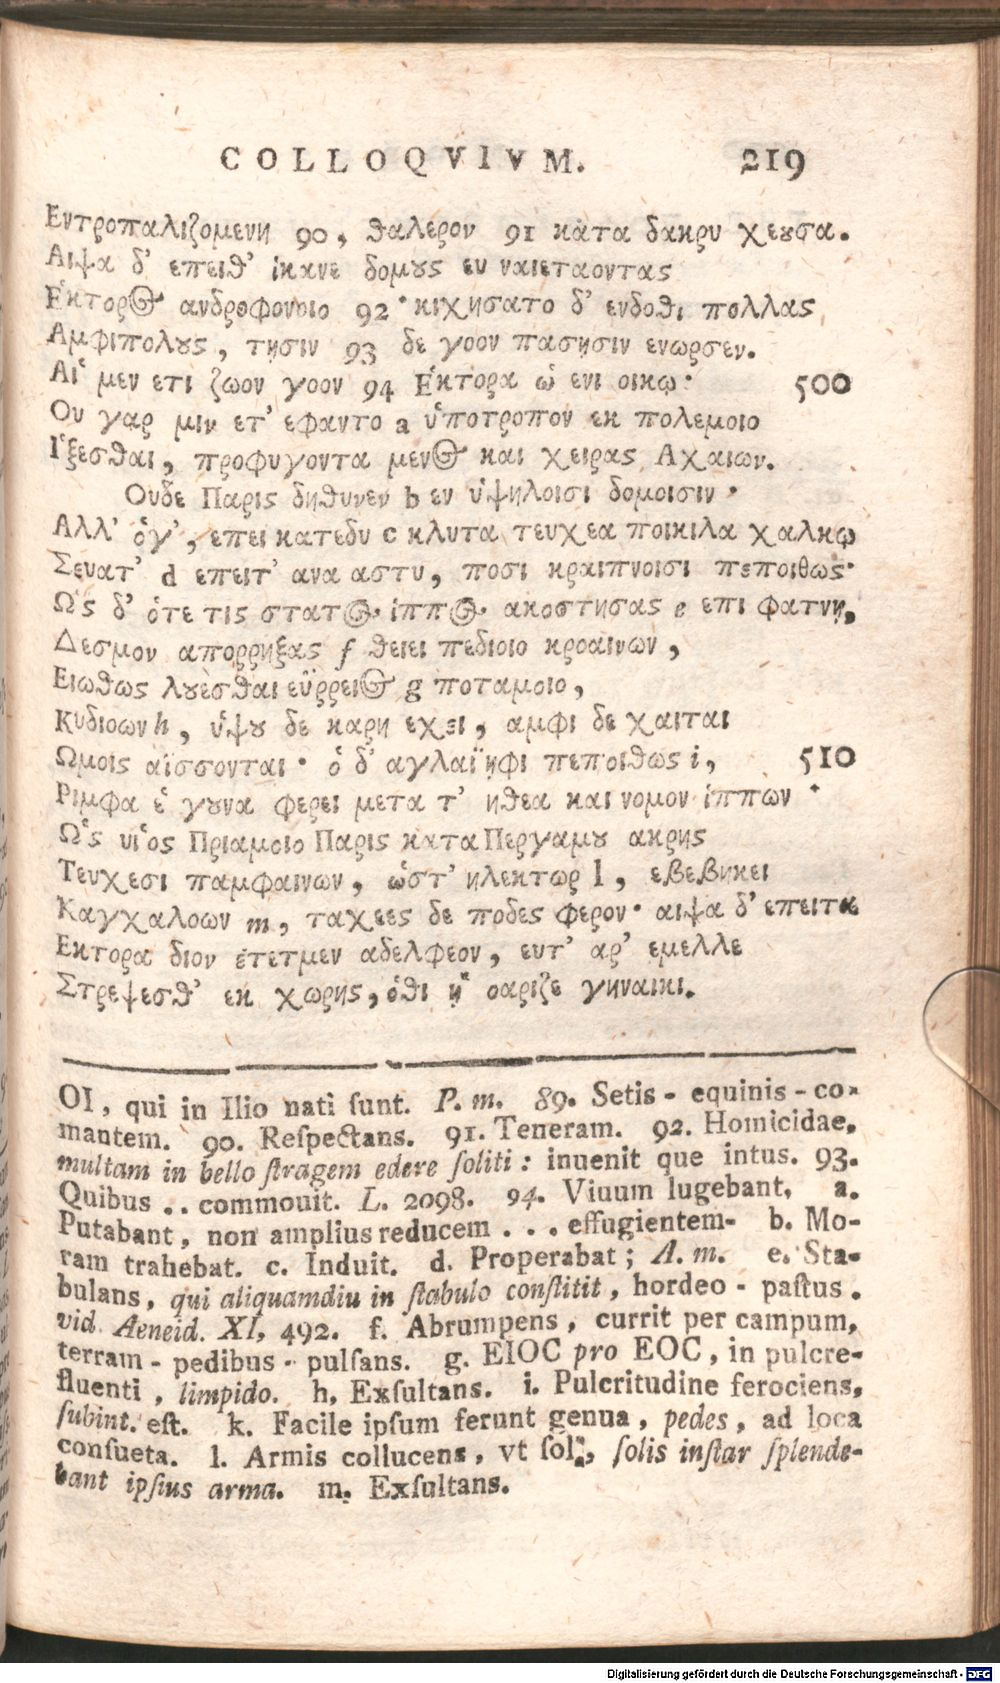 COLLOQVIVM. 219
Εντροπαλιζομενη 90, θαλερον 91 κατα δακρυ χεουσα.
Αιψα δ' επειθ' ἱκανε δομους ευ ναιεταοντας
Ἑκτορος ανδροφονοιο 92· κιχησατο δ' ενδοθι πολλας
Αμφιπολους, τησιν 93 δε γοον πασησιν ενωρσεν.
Αἱ μεν ετι ζωον γοον 94 Ἑκτορα ᾡ ενι οικῳ· 500
Ου γαρ μιν ετ' εφαντο a ὑποτροπον εκ πολεμοιο
Ἱξεσθαι, προφυγοντα μενος και χειρας Αχαιων.
Ουδε Παρις δηθυνεν b εν ὑψηλοισι δομοισιν·
Αλλ' ὁγ', επει κατεδυ c κλυτα τευχεα ποικιλα χαλκῳ
Σευατ' d επειτ' ανα αστυ, ποσι κραιπνοισι πεποιθως·
Ὡς δ' ὁτε τις στατος ἱππος ακοστησας e επι φατνῃ,
Δεσμον απορρηξας f θειει πεδιοιο κροαινων,
Ειωθως λουεσθαι εϋρρειος g ποταμοιο,
Κυδιοων h, ὑψου δε καρη εχει, αμφι δε χαιται
Ωμοις αϊσσονται· ὁ δ' αγλαϊηφι πεποιθως i, 510
Ριμφα ἑ γουνα φερει μετα τ' ηθεα και νομον ἱππων·
Ὡς υἱος Πριαμοιο Παρις κατα Περγαμου ακρης
Τευχεσι παμφαινων, ὡστ' ηλεκτωρ l, εβεβηκει
Καγχαλοων m, ταχεες δε ποδες φερον· αιψα δ' επειτα
Εκτορα διον ετετμεν αδελφεον, ευτ' αρ' εμελλε
Στρεψεσθ' εκ χωρης, ὁθι ᾑ οαριζε γηναικι.
OI, qui in Ilio nati ſunt. P. m. 89. Setis - equinis - co-
mantem. 90. Reſpectans. 91. Teneram. 92. Homicidae,
multam in bello ſtragem edere ſoliti: inuenit que intus. 93.
Quibus .. commouit. L. 2098. 94. Viuum lugebant. a.
Putabant, non amplius reducem . . . effugientem- b. Mo-
ram trahebat. c. Induit. d. Properabat; A. m. e. Sta-
bulans, qui aliquamdiu in ſtabulo conſtitit, hordeo - paſtus.
vid. Aeneid. XI, 492. f. Abrumpens, currit per campum,
terram - pedibus - pulſans. g. ΕΙΟC pro ΕΟC, in pulcre-
fluenti, limpido. h. Exſultans. i. Pulcritudine ferociens,
ſubint. eſt. k. Facile ipſum ferunt genua, pedes, ad loca
conſueta. l. Armis collucens, vt ſol, ſolis inſtar ſplende-
bant ipſius arma. m. Exſultans.
Digitalisierung gefördert durch die Deutsche Forschungsgemeinschaft - DFG